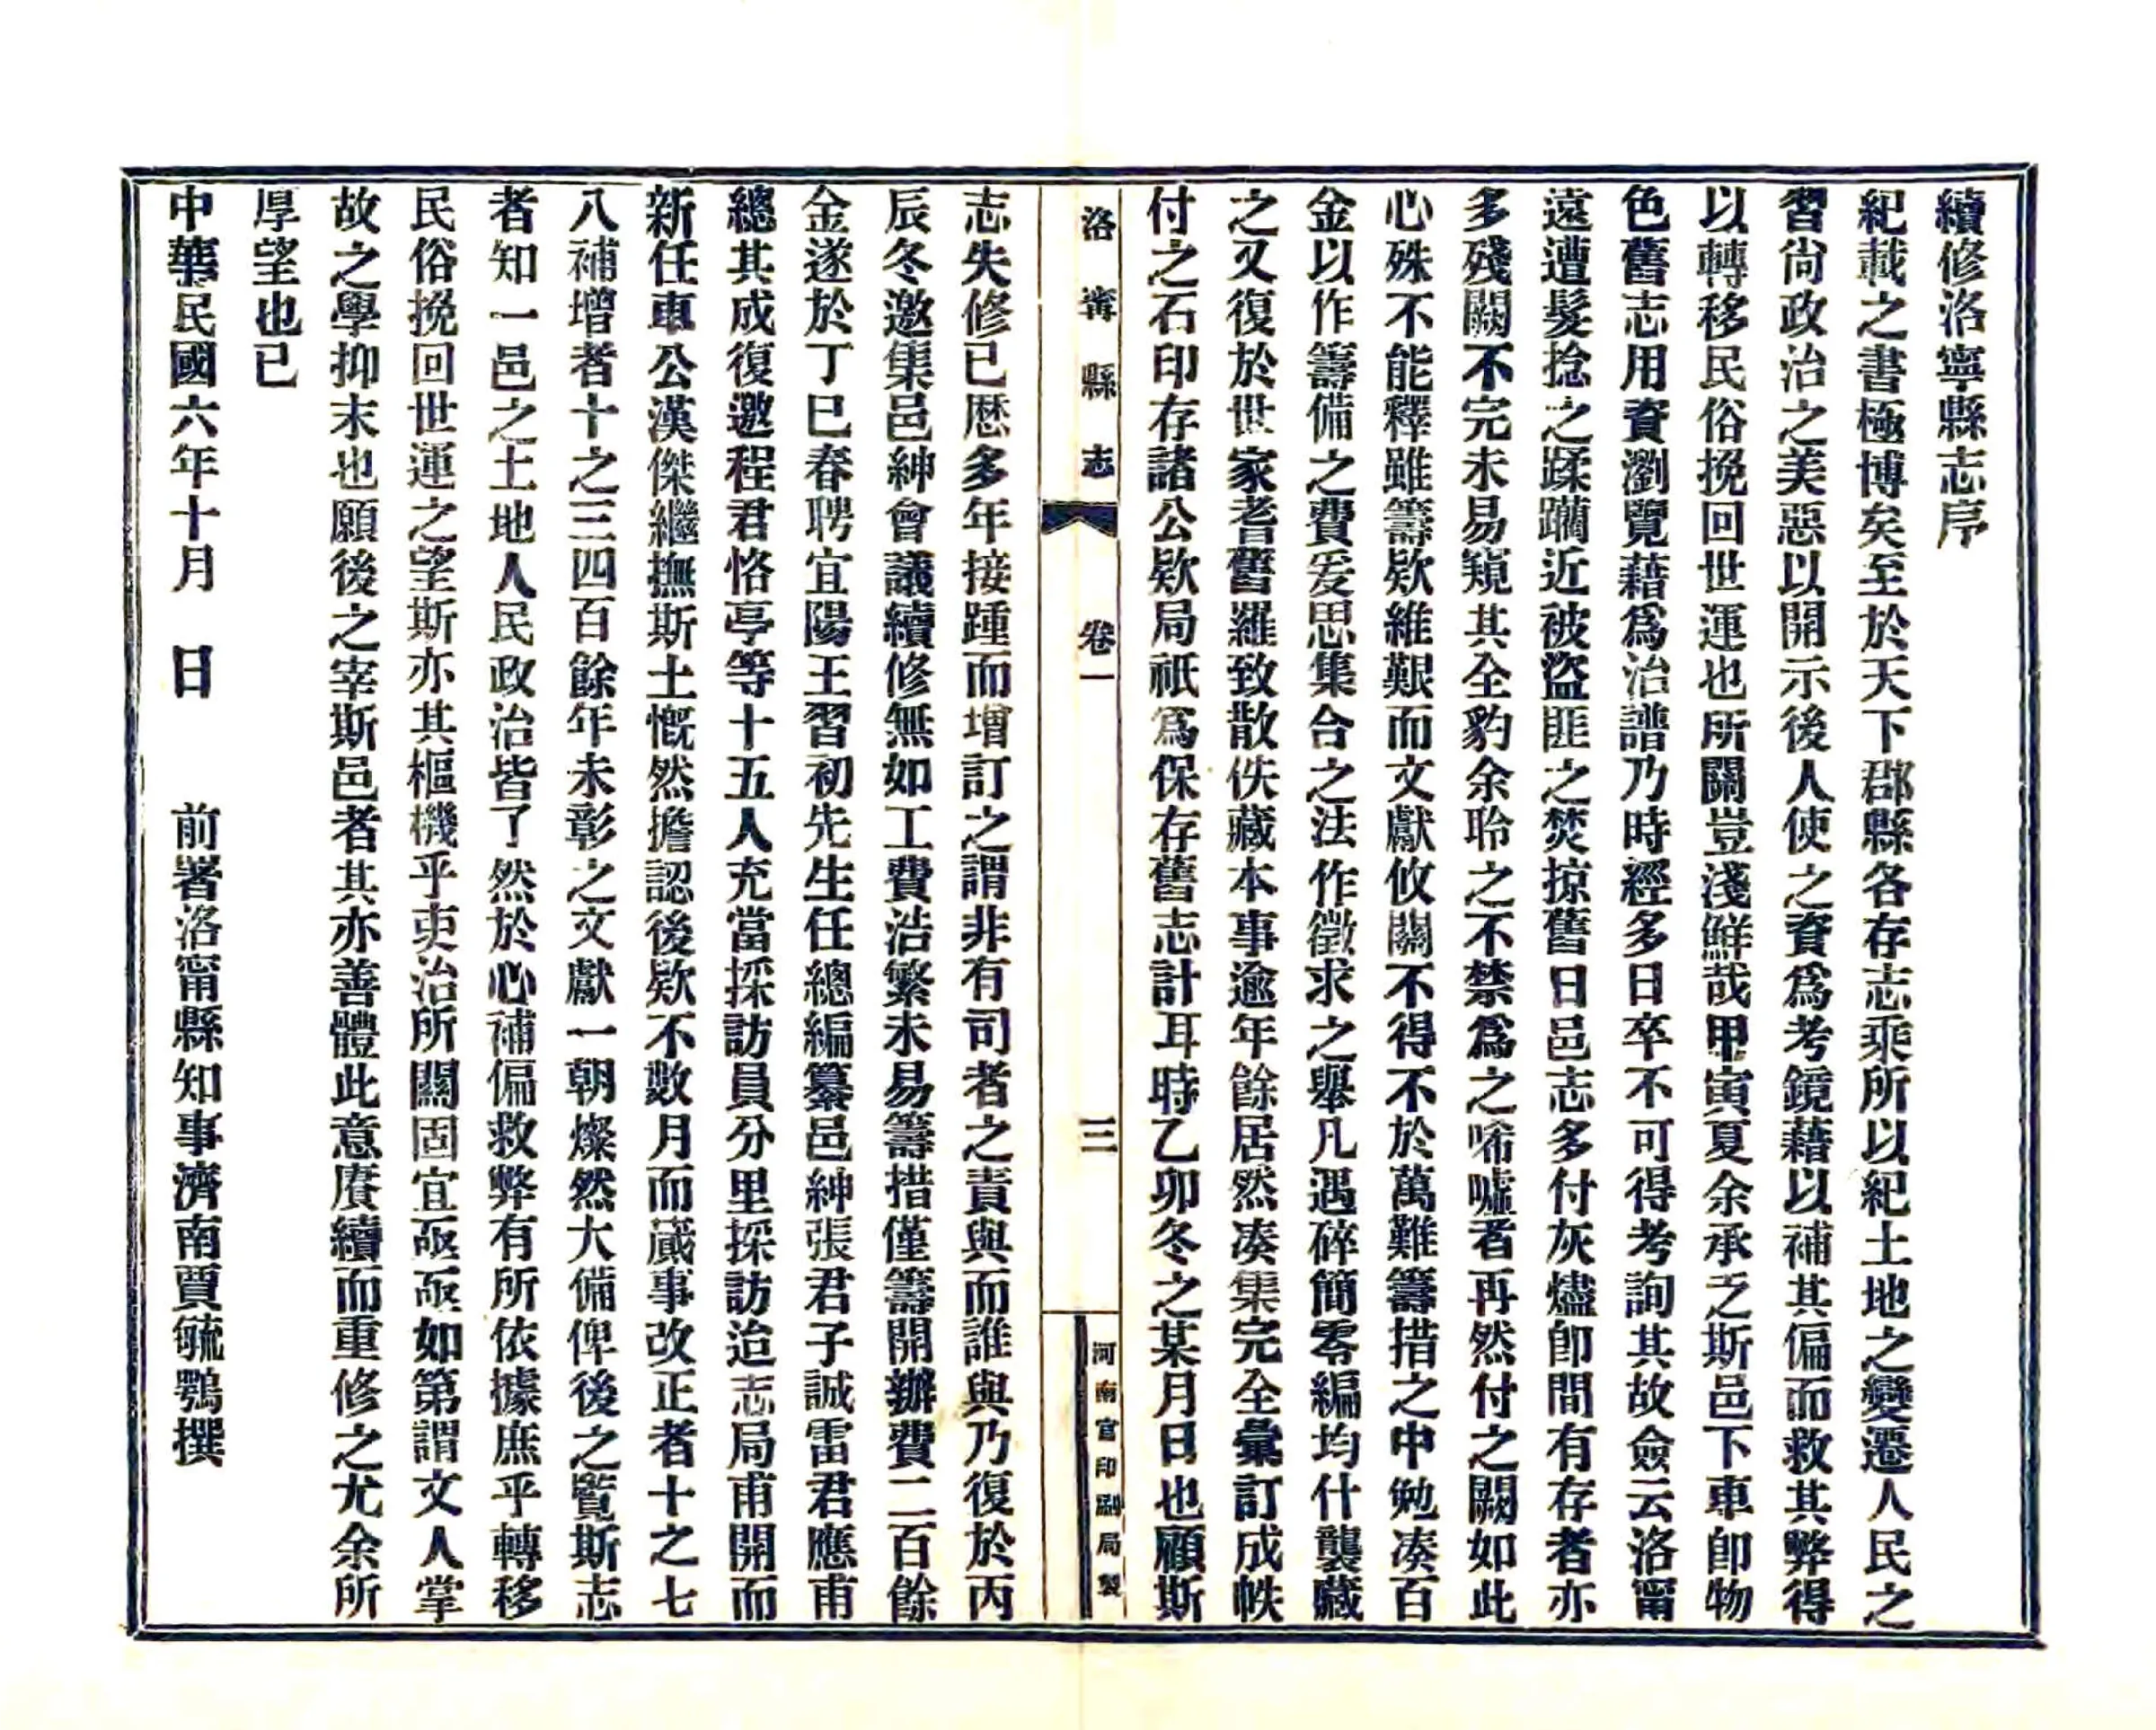 續修洛寧縣志序
紀載之書極博矣至於天下郡縣各存志乘所以紀土地之變遷人民之
習尚政治之美惡以開示後人使之資爲考鏡藉以補其偏而救其弊得
以轉移民俗挽回世運也所關豈淺鮮哉甲寅夏余承乏斯邑下車卽物
色舊志用資瀏覽藉爲治譜乃時經多日卒不可得考詢其故僉云洛甯
遠遭髮捻之蹂躪近被盜匪之焚掠舊日邑志多付灰燼卽間有存者亦
多殘闕不完未易窺其全豹余聆之不禁爲之唏噓者再然付之闕如此
心殊不能釋雖籌欵維艱而文獻攸關不得不於萬難籌措之中勉湊百
金以作籌備之費爰思集合之法作徵求之舉凡遇碎簡零編均什襲藏
之又復於世家耆舊羅致散佚藏本事逾年餘居然凑集完全彙訂成帙
付之石印存諸公欵局祇爲保存舊志計耳時乙卯冬之某月日也顧斯
洛甯縣志 卷一 三 河南官印刷局製
志失修已歷多年接踵而增訂之謂非有司者之責與而誰與乃復於丙
辰冬邀集邑紳會議續修無如工費浩繁未易籌措僅籌開辦費二百餘
金遂於丁巳春聘宜陽王習初先生任總編纂邑紳張君子誠雷君應甫
總其成復邀程君恪亭等十五人充當採訪員分里採訪迨志局甫開而
新任車公漢傑繼撫斯土慨然擔認後欵不數月而蕆事改正者十之七
八補增者十之三四百餘年未彰之文獻一朝燦然大備俾後之覽斯志
者知一邑之土地人民政治皆了然於心補偏救弊有所依據庶乎轉移
民俗挽回世運之望斯亦其樞機乎吏治所關固宜亟亟如第謂文人掌
故之學抑末也願後之宰斯邑者其亦善體此意賡續而重修之尤余所
厚望也已
中華民國六年十月 日 前署洛甯縣知事濟南賈毓鶚撰